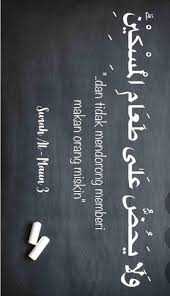 وَلَا يَحُضُّ عَلَىٰ طَعَامِ الْمِسْكِيْنِۗ
"..dan tidak mendorong memberi
makan orang miskin"
Surah Al-Maun 3